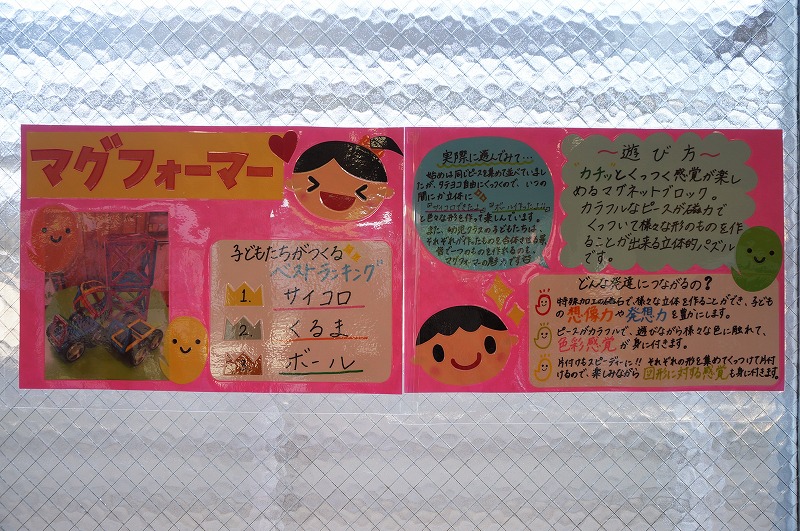 マグフォーマー
子どもたちがつくる
ベストランキング
1. サイコロ
2. くるま
ボール
実際に遊んでみて…
始めは同じピースを集めて並べていまし
たが、タテヨコ自由にくっつくので、いつの
間にか立体に!
『サイコロできたよ』『ボール
と色々な形を作って楽しんでいます。
また、幼児クラスの子どもたちは、
それぞれが作ったものを合体させる等
皆で一つのものを作れるのも、
マグフォーマーの魅力です
〜遊び方〜
"カチッ"とくっつく感覚が楽し
めるマグネットブロック。
カラフルなピースが磁力で
くっついて様々な形のものを作
ることが出来る立体的パズル
です。
どんな発達につながるの?
特殊加工の磁石で、様々な立体を作ることができ、子ども
の想像力や発想力を豊かにします。
ピースがカラフルで、遊びながら様々な色に触れて、
色彩感覚が身に付きます。
片付けもスピーディーに!! それぞれの形を集めてくっつけて片付
けるので、楽しみながら図形に対する感覚も身に付きます。